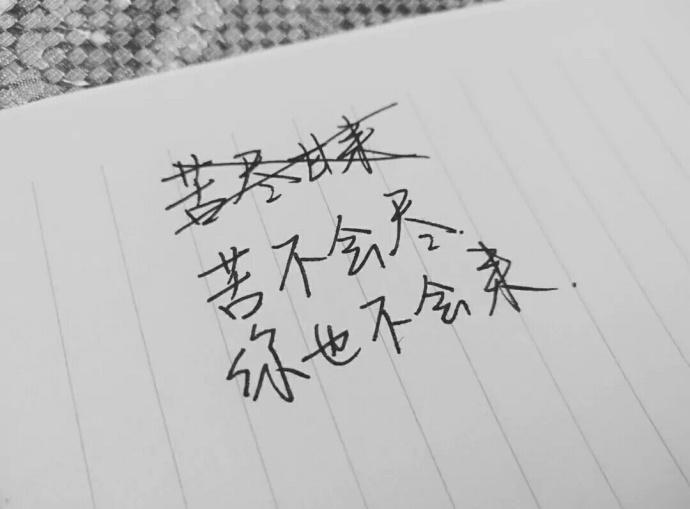 苦尽甘来
苦不会尽.
你也不会来.